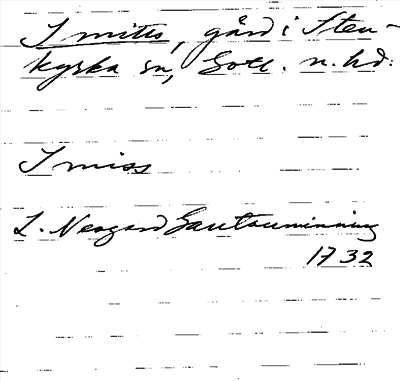 Smitts, gård i Sten-
kyrka sn, Gotl. n. hd:
Smiss
L. Neogard Gautauminning
1732